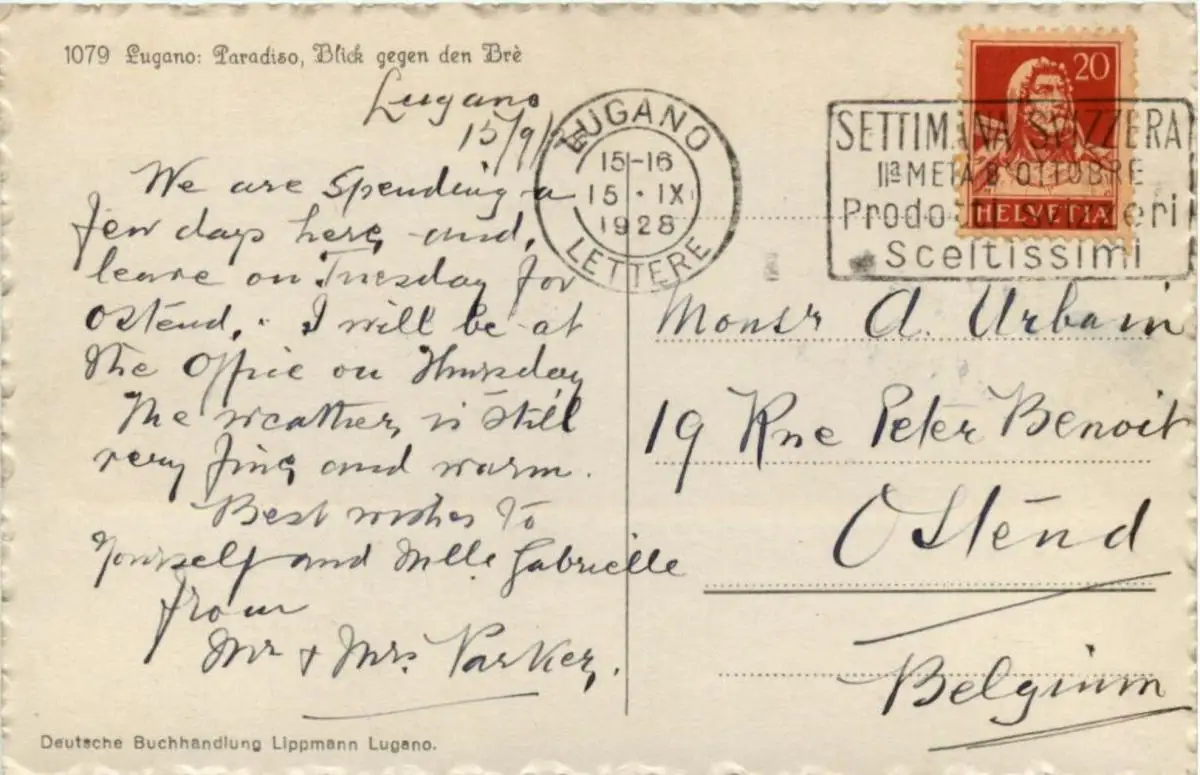 1079 Lugano: Paradiso, Blick gegen den Brè
Lugano
15/9/
We are spending a
few days here and,
leave on Tuesday for
Ostend. I will be at
the Office on Thursday
The weather is still
very fine and warm.
Best wishes to
yourself and Mlle Gabrielle
from
Mr & Mrs Parker.
Deutsche Buchhandlung Lippmann Lugano.
LUGANO
15-16
15 · IX
1928
LETTERE
20
HELVETIA
SETTIMANA SVIZZERA
IIª METÀ D'OTTOBRE
Prodotti svizzeri
Sceltissimi
Monsr A. Urbain
19 Rue Peter Benoit
Ostend
Belgium